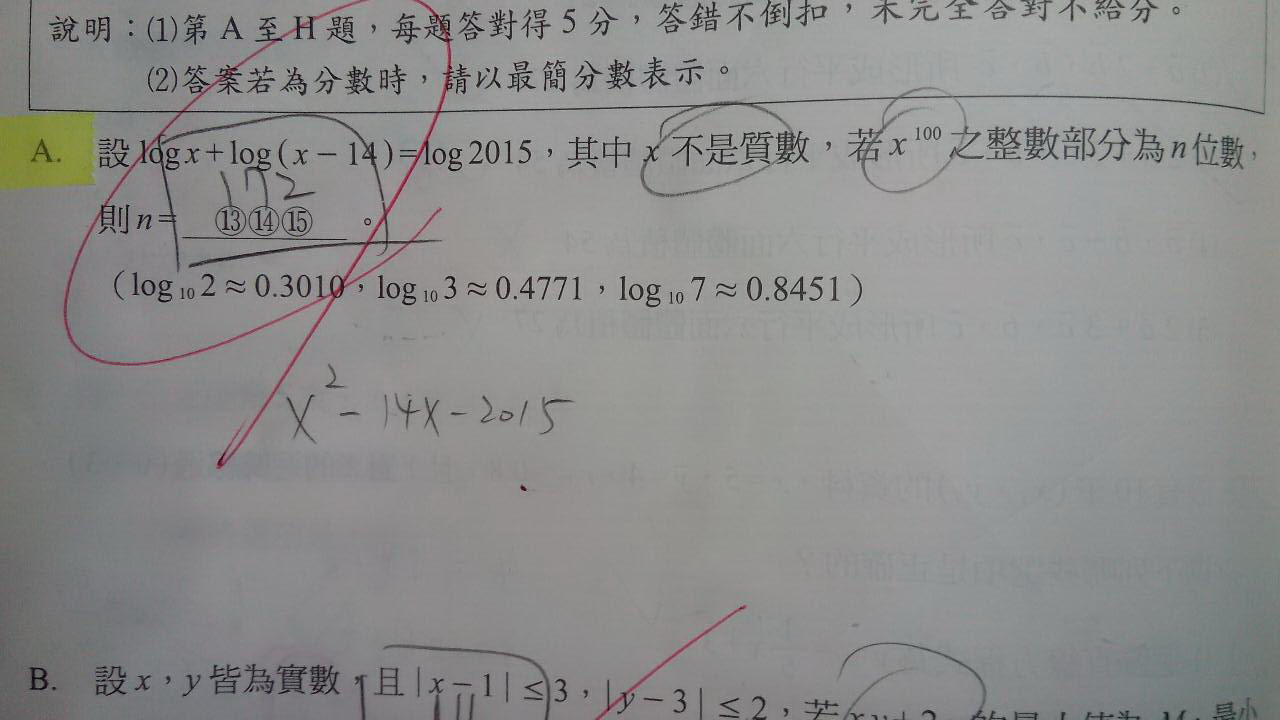 說明：(1)第 A 至 H 題，每題答對得 5 分，答錯不倒扣，未完全答對不給分。
(2)答案若為分數時，請以最簡分數表示。
A. 設 log x + log (x − 14) = log 2015，其中 x 不是質數，若 x¹⁰⁰ 之整數部分為 n 位數，
172
則 n = ⑬⑭⑮ 。
（log₁₀ 2 ≈ 0.3010，log₁₀ 3 ≈ 0.4771，log₁₀ 7 ≈ 0.8451）
x² − 14x − 2015
B. 設 x，y 皆為實數，且 | x − 1 | ≤ 3，| y − 3 | ≤ 2，若